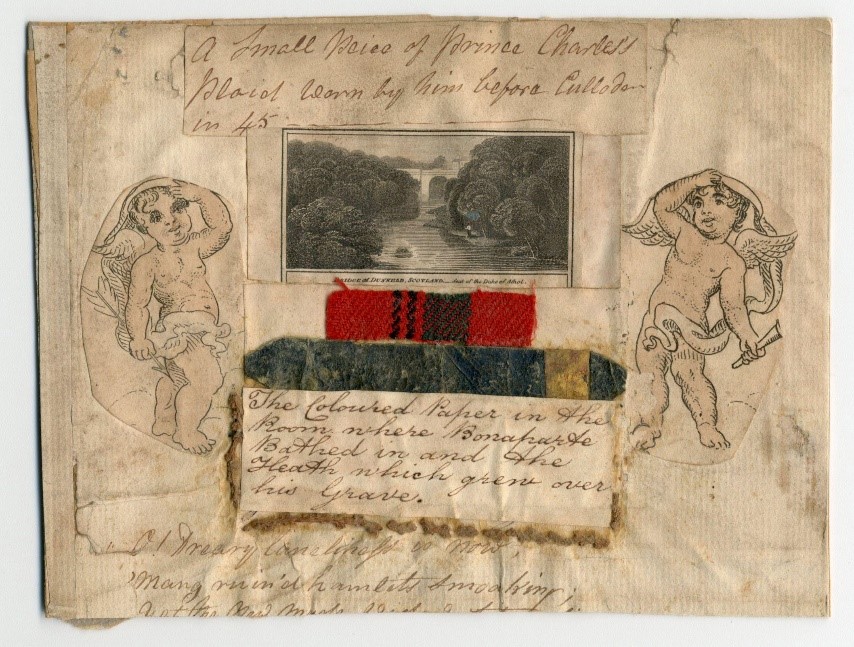 A Small Peice of Prince Charles's
Plaid worn by him before Culloden
in 45
BRIDGE OF DUNKELD, SCOTLAND. Seat of the Duke of Athol.
The Coloured Paper in the
Room where Bonaparte
Bathed in and the
Heath which grew over
his Grave.
O! Dreary loneliness is now,
'Mang ruin'd hamlets smoaking;
Yet the New